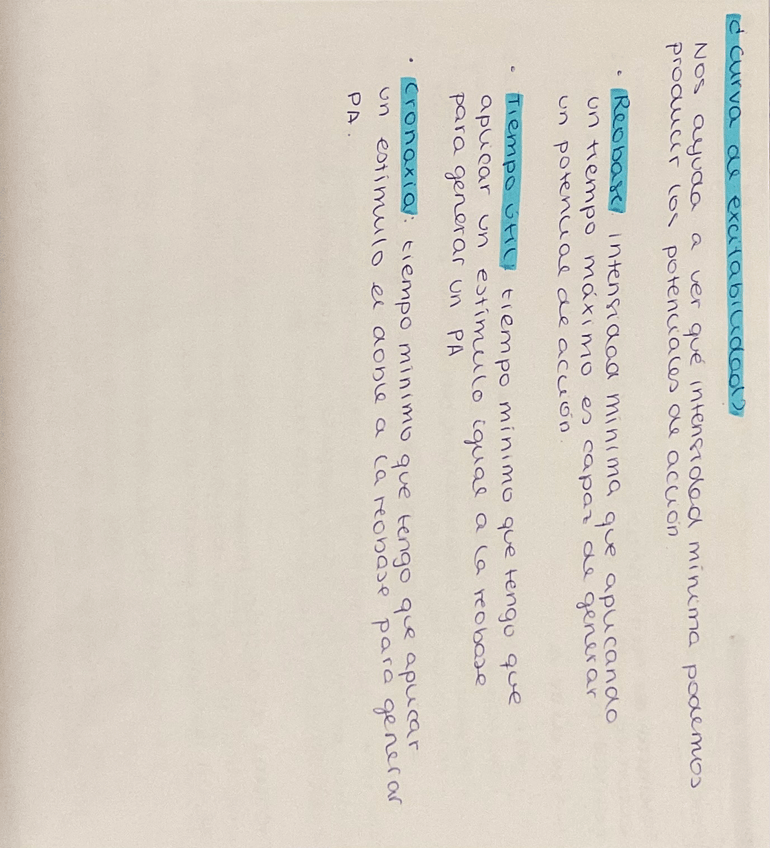 ¿Curva de excitabilidad?
Nos ayuda a ver qué intensidad mínima podemos
producir los potenciales de acción
· Reobase, intensidad mínima que aplicando
un tiempo máximo es capaz de generar
un potencial de acción.
· Tiempo útil, tiempo mínimo que tengo que
aplicar un estímulo igual a la reobase
para generar un PA
· Cronaxia: tiempo mínimo que tengo que aplicar
un estímulo el doble a la reobase para generar
PA.